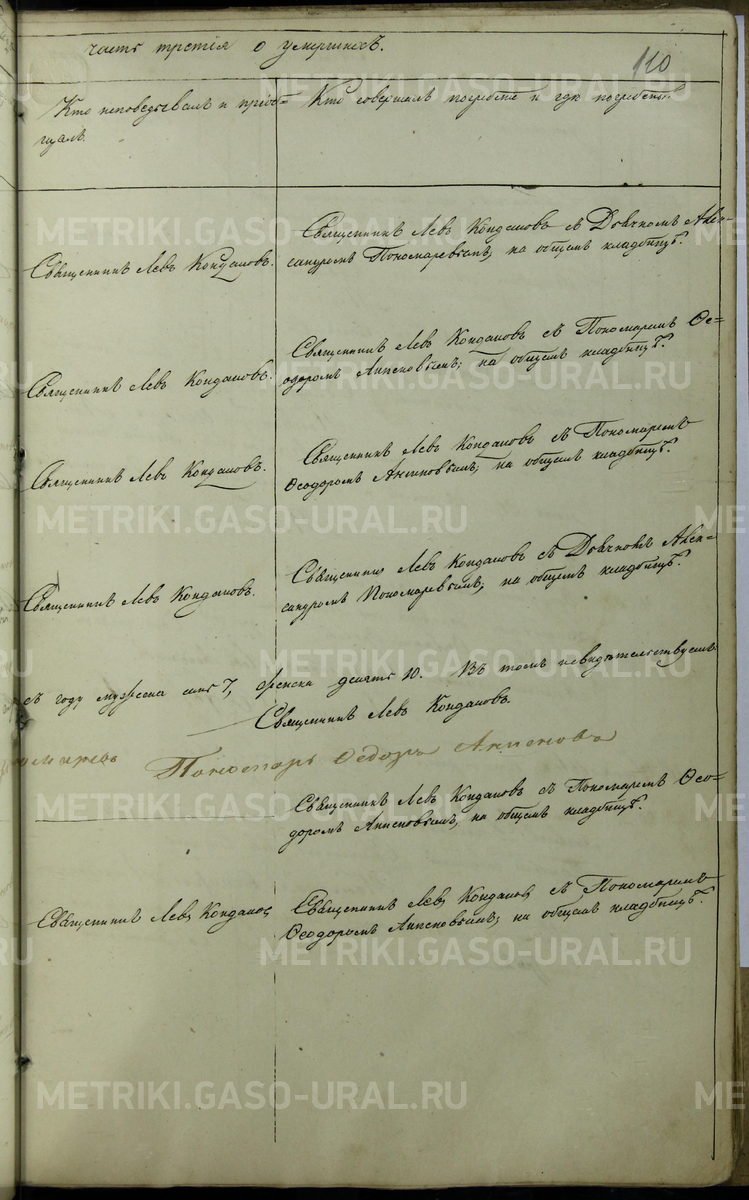 часть третія о умершихъ.
110
Кто исповѣдывалъ и пріоб=
щалъ.
Кто совершалъ погребеніе и гдѣ погребены.
Священникъ Левъ Кондаковъ.
Священникъ Левъ Кондаковъ съ Дьячкомъ Алек-
сандромъ Пономаревымъ, на общемъ кладбищѣ.
Священникъ Левъ Кондаковъ.
Священникъ Левъ Кондаковъ съ Пономаремъ Ѳе=
одоромъ Анисковымъ; на общемъ кладбищѣ.
Священникъ Левъ Кондаковъ.
Священникъ Левъ Кондаковъ съ Пономаремъ
Ѳеодоромъ Анисковымъ; на общемъ кладбищѣ.
Священникъ Левъ Кондаковъ.
Священникъ Левъ Кондаковъ съ Дьячкомъ Алек-
сандромъ Пономаревымъ, на общемъ кладбищѣ.
году мужеска 7, женска десять 10. Въ томъ свидѣтельствуемъ
Священникъ Левъ Кондаковъ.
Пономарь Ѳедоръ
Священникъ Левъ Кондаковъ съ Пономаремъ Ѳео-
доромъ Анисковымъ, на общемъ кладбищѣ.
Священникъ Левъ Кондаковъ
Священникъ Левъ Кондаковъ съ Пономаремъ
Ѳеодоромъ Анисковымъ; на общемъ кладбищѣ.
METRIKI.GASO-URAL.RU